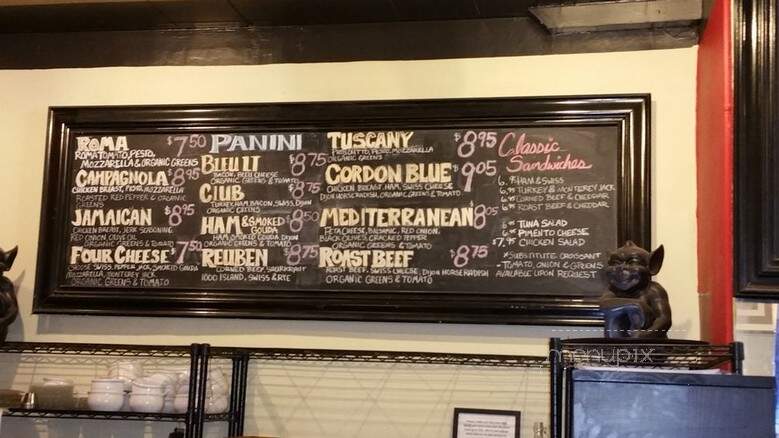 ROMA $7.50
ROMA TOMATO, PESTO,
MOZZARELLA & ORGANIC GREENS
CAMPAGNOLA $8.95
CHICKEN BREAST, PESTO, MOZZARELLA
ROASTED RED PEPPER & ORGANIC
GREENS
JAMAICAN $8.95
CHICKEN BREAST, JERK SEASONING
RED ONION, OLIVE OIL
ORGANIC GREENS & TOMATO
FOUR CHEESE $7.50
SWISS, PEPPER JACK, SMOKED GOUDA
MOZZARELLA, MONTEREY JACK
ORGANIC GREENS & TOMATO
PANINI
BLEU LT $8.75
BACON, BLEU CHEESE
ORGANIC GREENS & TOMATO
CLUB $8.75
TURKEY, HAM, BACON, SWISS, DIJON
ORGANIC GREENS
HAM & SMOKED GOUDA $8.50
HAM, SMOKED GOUDA, DIJON
ORGANIC GREENS & TOMATO
REUBEN $8.75
CORNED BEEF, SAUERKRAUT
1000 ISLAND, SWISS & RYE
TUSCANY $8.95
PROSCIUTTO, PESTO, MOZZARELLA
ORGANIC GREENS
CORDON BLUE $9.05
CHICKEN BREAST, HAM, SWISS CHEESE
DIJON HORSERADISH, ORGANIC GREENS & TOMATO
MEDITERRANEAN $8.05
FETA CHEESE, BALSAMIC, RED ONION,
BLACK OLIVES, CRACKED PEPPER
ORGANIC GREENS & TOMATO
ROAST BEEF $8.75
ROAST BEEF, SWISS CHEESE, DIJON HORSERADISH
ORGANIC GREENS & TOMATO
Classic
Sandwiches
HAM & SWISS
TURKEY & MONTEREY JACK
CORNED BEEF & CHEDDAR
ROAST BEEF & CHEDDAR
TUNA SALAD
PIMENTO CHEESE
$7.95 CHICKEN SALAD
*SUBSTITUTE CROISSANT
-TOMATO, ONION & GREENS
AVAILABLE UPON REQUEST
menupix